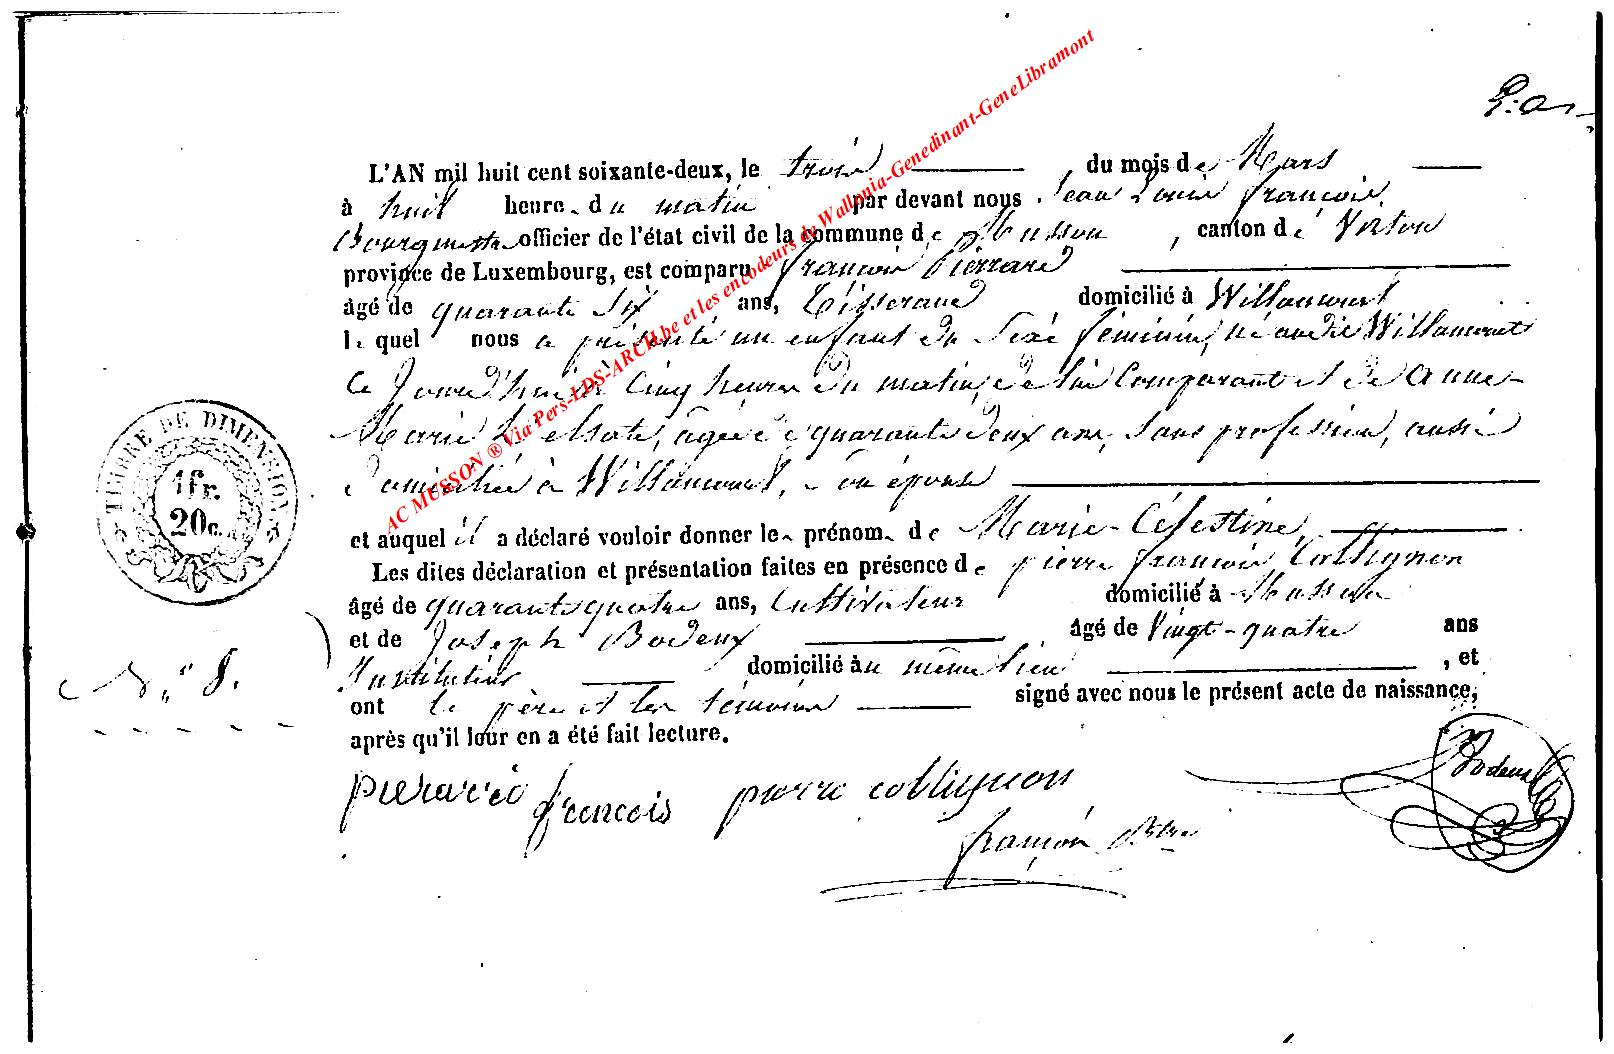 L'AN mil huit cent soixante-deux, le trois du mois de Mars
à huit heure du matin par devant nous Jean Louis françois,
Bourgmestre officier de l'état civil de la commune de Musson, canton de Virton
province de Luxembourg, est comparu françois Pierrard
âgé de quarante six ans, Tisserand domicilié à Willancourt
lequel nous a présenté un enfant du Sexe féminin, né audit Willancourt
Ce Jourd'hui à Cinq heures du matin, de lui Comparant et de anne
Marie, âgée de quarante deux ans, Sans profession, aussi
domiciliée à Willancourt, son épouse
et auquel il a déclaré vouloir donner le prénom de Marie-Célestine,
Les dites déclaration et présentation faites en présence de pierre françois Collignon
âgé de quarante quatre ans, Cultivateur domicilié à Musson
et de Joseph Bodeux, âgé de Vingt-quatre ans
Instituteur domicilié au même lieu, et
ont le père et les témoins signé avec nous le présent acte de naissance,
après qu'il leur en a été fait lecture.
TIMBRE DE DIMENSION
1 fr.
20 c.
N° 8.
francois
pierre collignon
Bodeux
françois Btre
AC MUSSON ® Via Pers-LDS-ARCH.be et les encodeurs de Wallonia-Genedinant-GeneLibramont